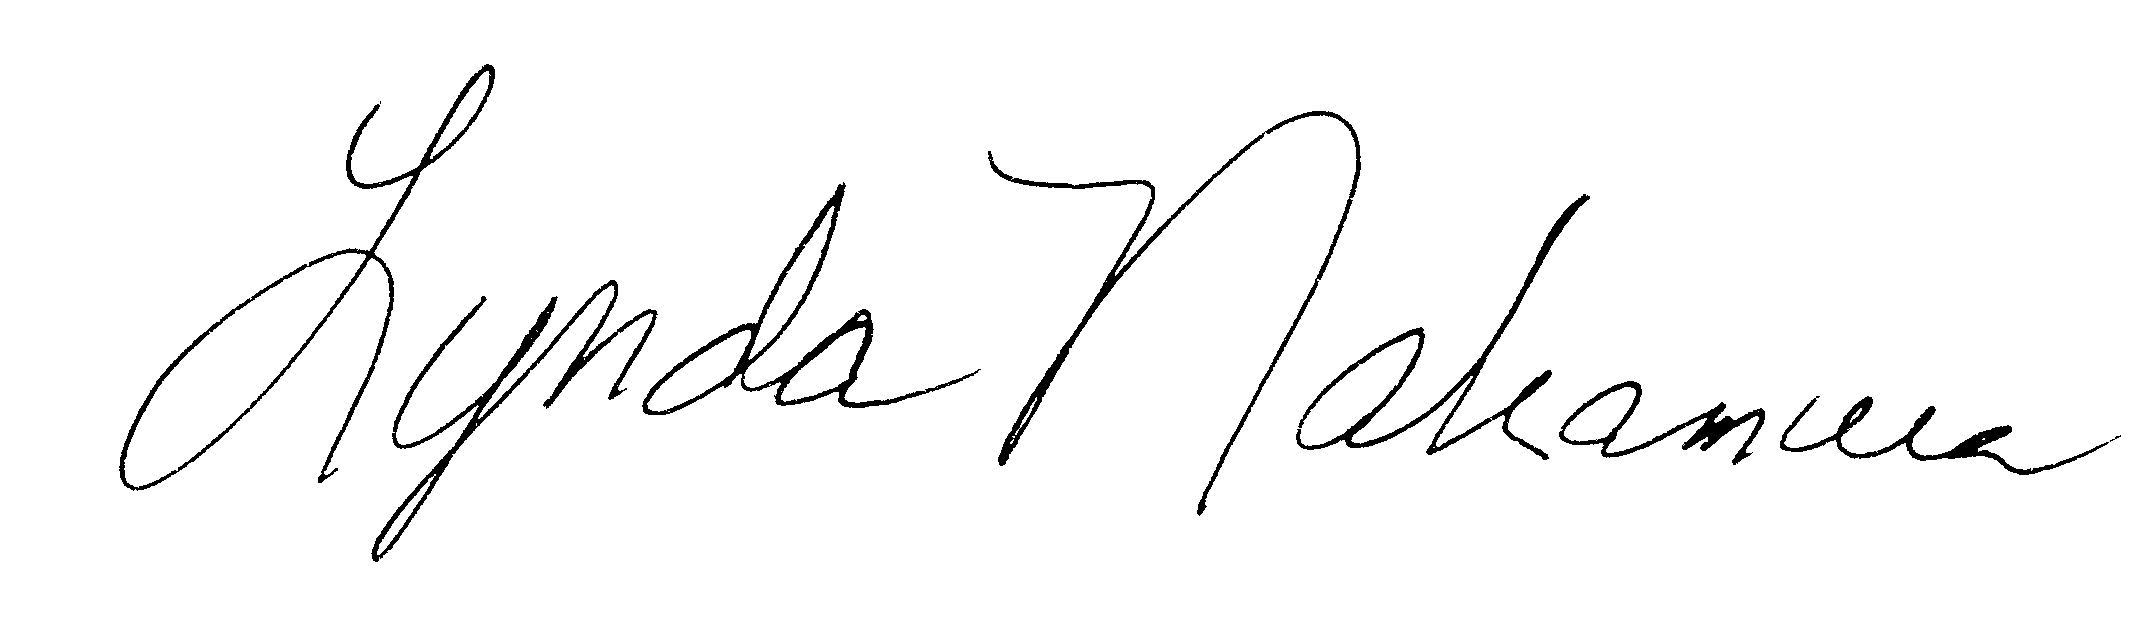 Lynda Nakamura